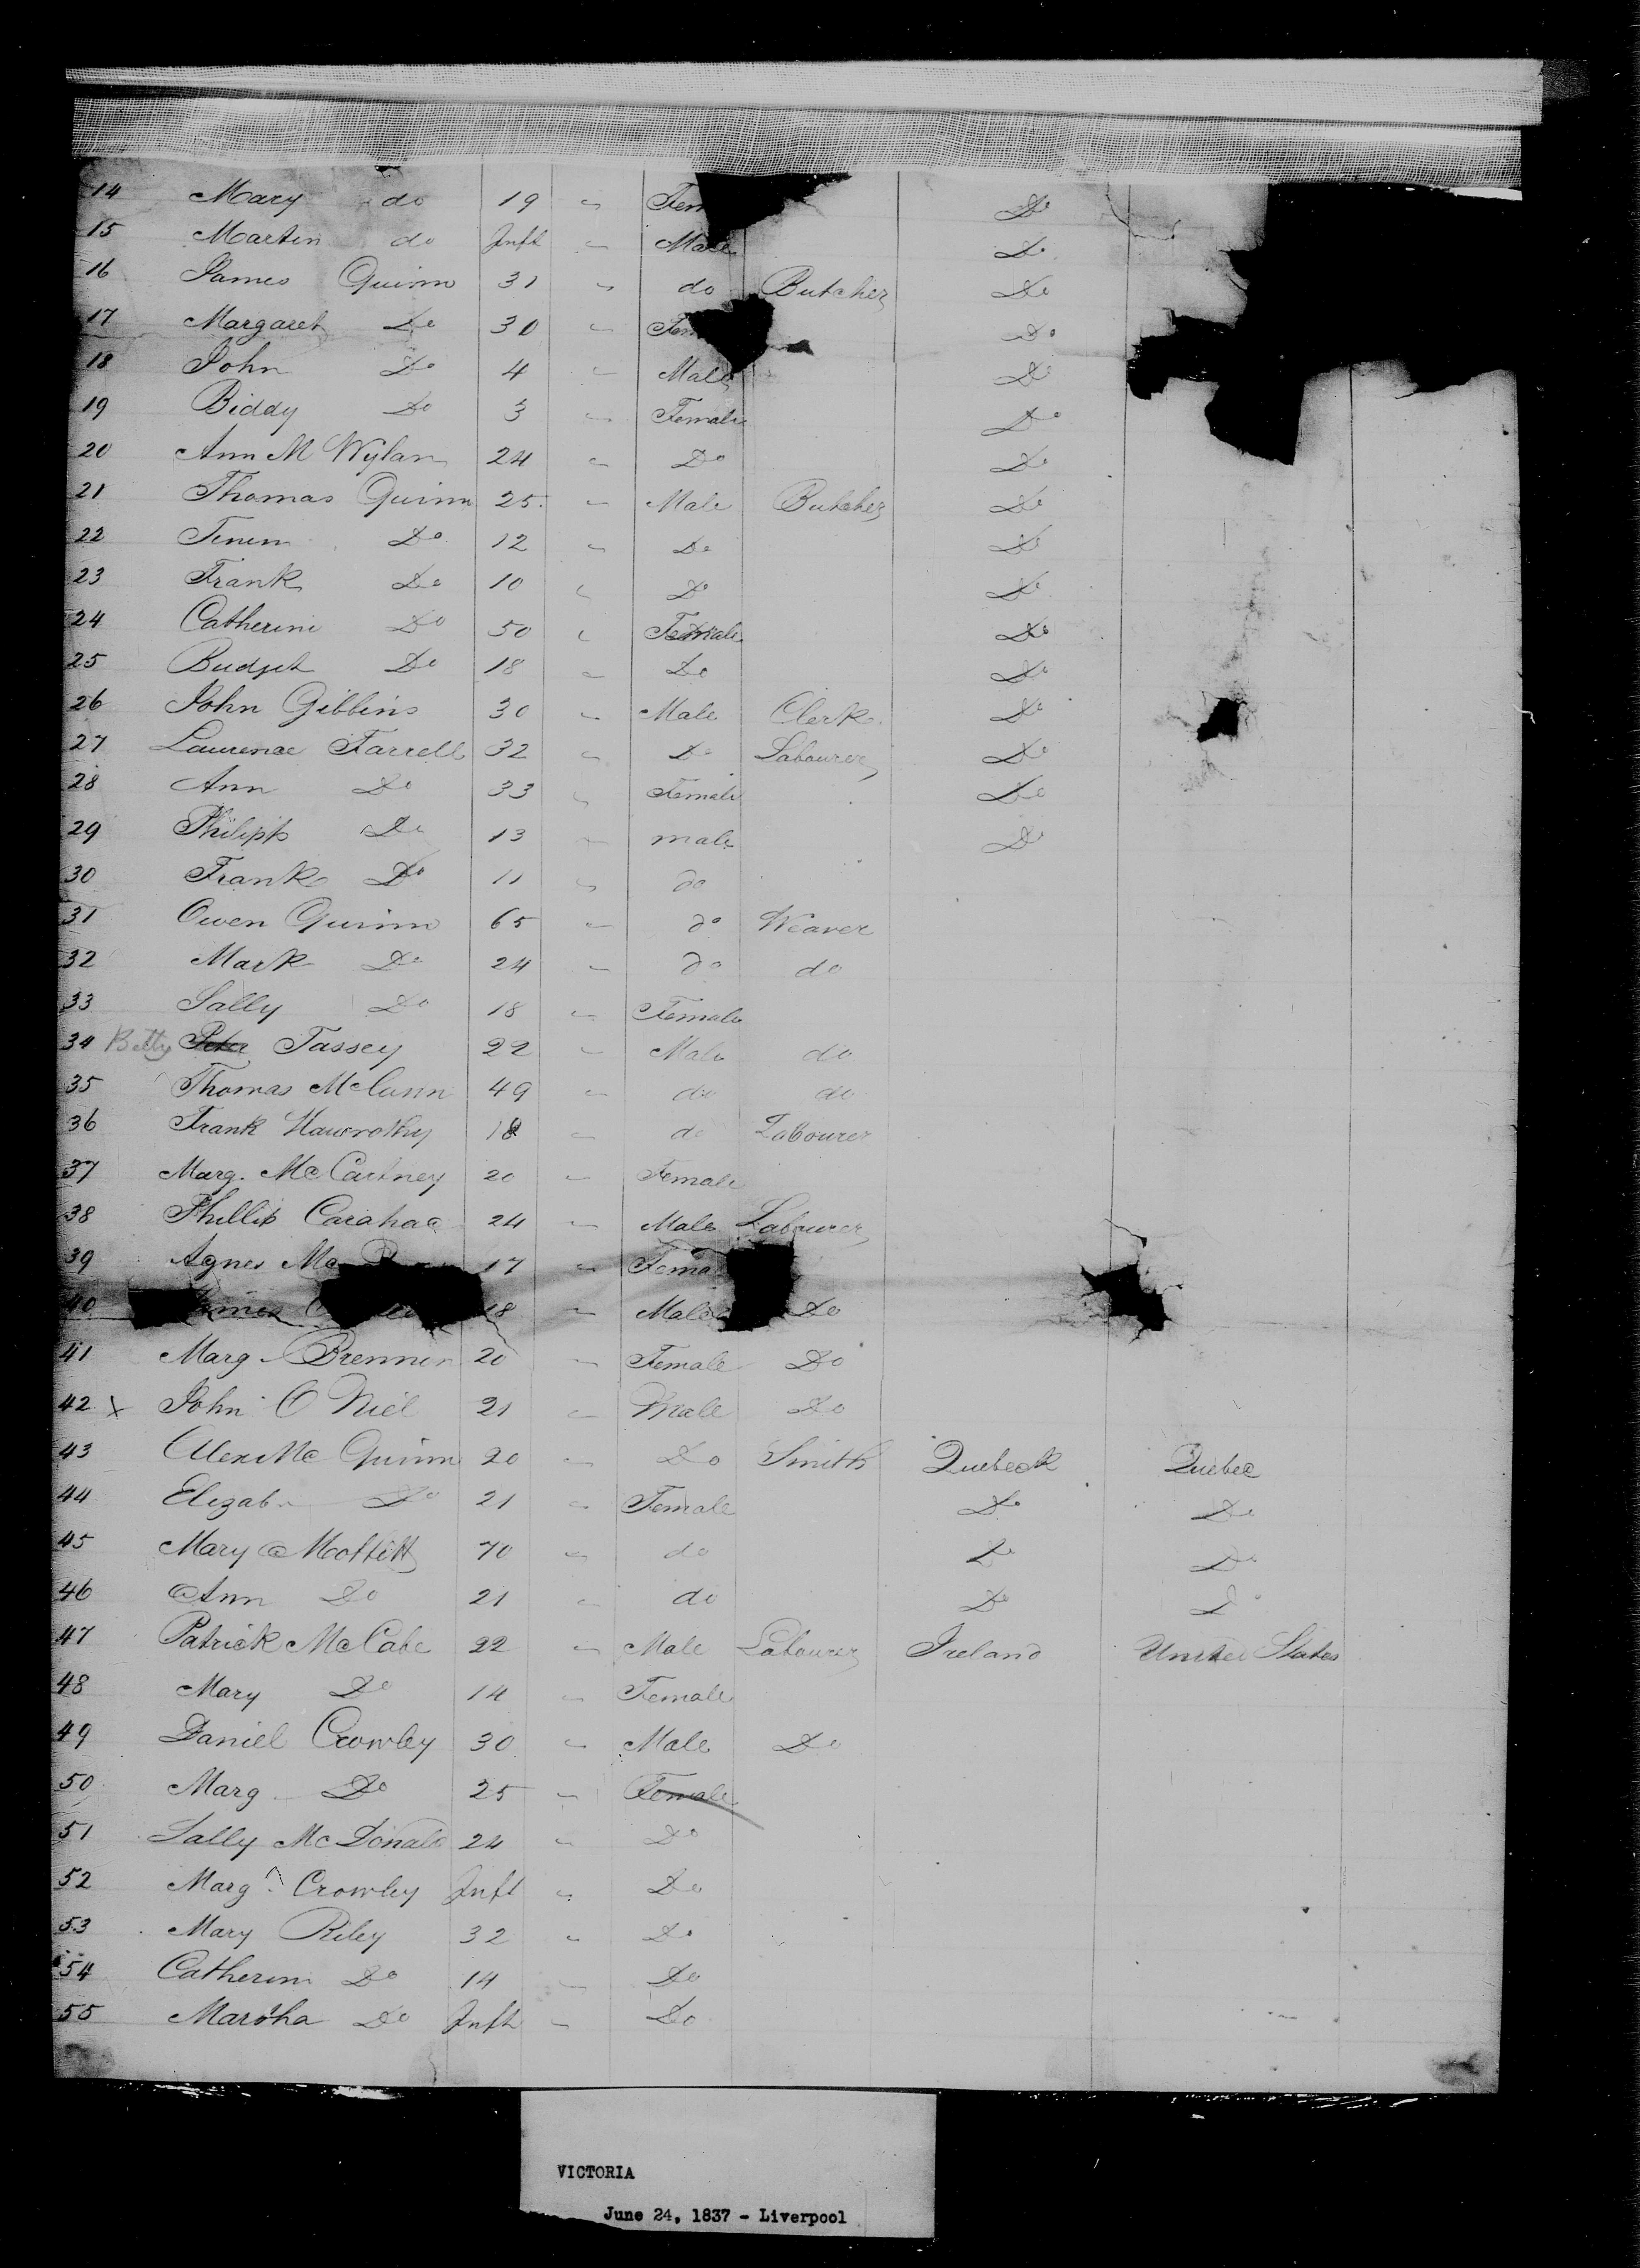 14 Mary do 19 " Fem Do
15 Martin do Inft " Male Do
16 James Quinn 31 " do Butcher Do
17 Margaret Do 30 " Fem Do
18 John Do 4 " Male Do
19 Biddy Do 3 " Female Do
20 Ann M Wylan 24 " Do Do
21 Thomas Quinn 25 " Male Butcher Do
22 Do 12 " Do Do
23 Frank Do 10 " Do Do
24 Catherine Do 50 " Female Do
25 Do 18 " Do Do
26 John Gibbins 30 " Male Clerk Do
27 Laurence Farrell 32 " Do Labourer Do
28 Ann Do 33 " Female Do
29 Philipp Do 13 " male Do
30 Frank Do 11 " do
31 Owen Quinn 65 " do Weaver
32 Mark Do 24 " do do
33 Sally Do 18 " Female
34 Betty Peter Tassey 22 " Male do
35 Thomas McCann 49 " do do
36 Frank 18 " do Labourer
37 Marg. McCartney 20 " Female
38 Phillip 24 " Male Labourer
39 Agnes Mc 17 " Fema
40 18 " Male Do
41 Marg Brenner 20 " Female Do
42 x John O Niel 21 " Male Do
43 Alex Mc Quinn 20 " Do Smith Quebeck Quebec
44 Elizab Do 21 " Female Do Do
45 Mary Moffett 70 " do Do Do
46 Ann Do 21 " do Do Do
47 Patrick McCabe 22 " Male Labourer Ireland United States
48 Mary Do 14 " Female
49 Daniel Crowley 30 " Male Do
50 Marg Do 25 " Female
51 Sally McDonald 24 " Do
52 Marg Crowley Inft " Do
53 Mary Riley 32 " Do
54 Catherin Do 14 " Do
55 Martha Do Inft " Do
VICTORIA
June 24, 1837 - Liverpool